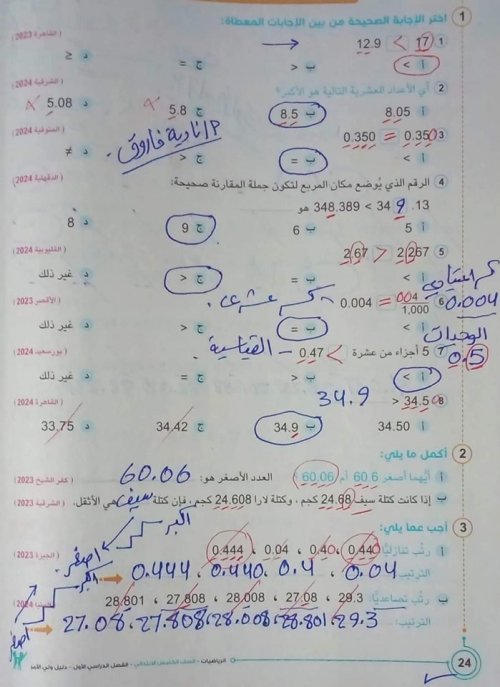 1 اختر الإجابة الصحيحة من بين الإجابات المعطاة:
1 17 > 12.9 (القاهرة 2023)
أ > ب < ج = د ≤
2 أي الأعداد العشرية التالية هو الأكبر؟ (الشرقية 2024)
أ 8.05 ب 8.5 ج 5.8 د 5.08
3 0.350 = 0.350 (المنوفية 2024)
أ < ب = ج > د ≠
م/نادية فاروق
4 الرقم الذي يُوضع مكان المربع لتكون جملة المقارنة صحيحة: (الدقهلية 2024)
348.389 < 349.13 هو
أ 5 ب 6 ج 9 د 8
5 2.267 2.67 (القليوبية 2024)
أ < ب = ج > د غير ذلك
كسر اعتيادي
6 004/1,000 = 0.004 كسر عشري (الأقصر 2023)
0.004
أ < ب = ج > د غير ذلك
الوحدات القياسية
7 5 أجزاء من عشرة 0.47 (بورسعيد 2024)
0.5
أ ب ج = د غير ذلك
34.9
8 34.5 < (القاهرة 2024)
أ 34.50 ب 34.9 ج 34.42 د 33.75
2 أكمل ما يلي:
أ أيهما أصغر 60.6 أم 60.06؟ العدد الأصغر هو: 60.06 (كفر الشيخ 2023)
ب إذا كانت كتلة سيف 24.68 كجم، وكتلة لارا 24.608 كجم، فإن كتلة سيف هي الأثقل. (الشرقية 2023)
3 أجب عما يلي:
أكبر أصغر
أ رتب تنازليًا 0.440 ، 0.40 ، 0.04 ، 0.444 (الجيزة 2023)
الترتيب: 0.444 ، 0.440 ، 0.4 ، 0.04
أكبر
ب رتب تصاعديًا: 29.3 ، 27.08 ، 28.008 ، 27.808 ، 28.801
أصغر
الترتيب: 27.08 ، 27.808 ، 28.008 ، 28.801 ، 29.3
24 الرياضيات - الصف الخامس الابتدائي - الفصل الدراسي الأول - دليل ولي الأمر